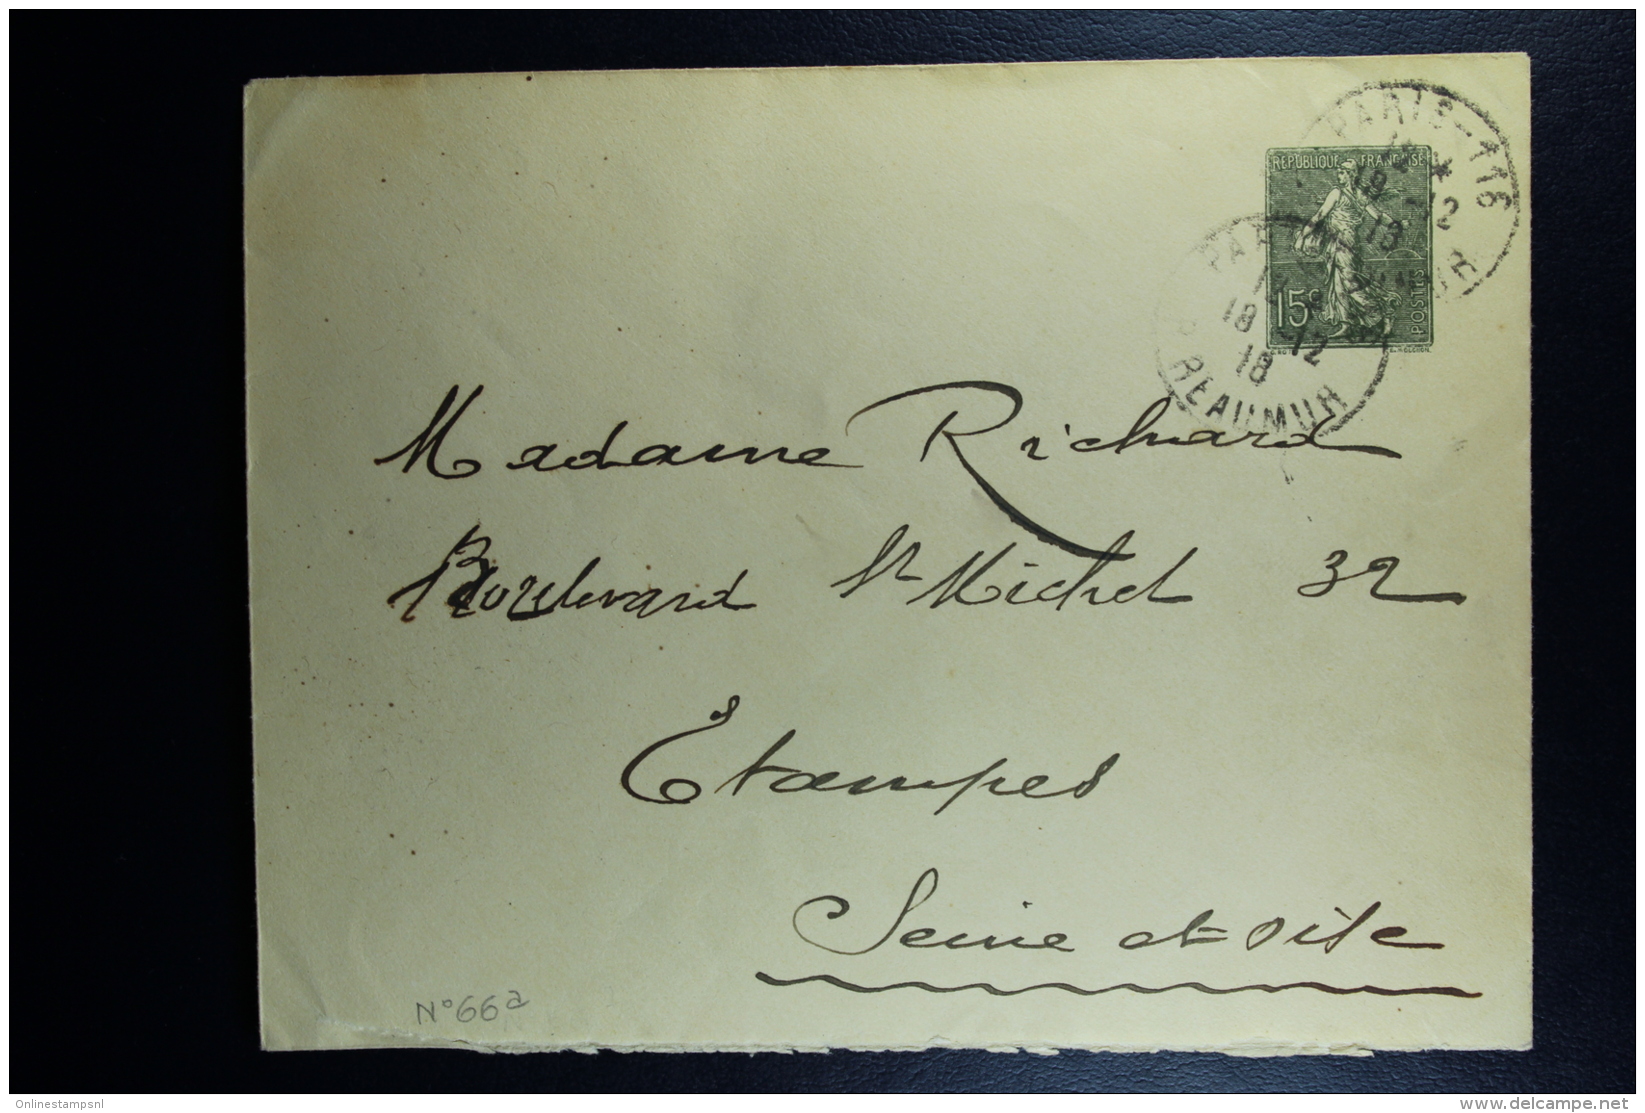 PARIS-116
12 *
18 -12
18
REPUBLIQUE FRANÇAISE
15c
POSTES
PARIS
18 -12
18
R. REAUMUR
Madame Richard
Boulevard St Michel 32
Etampes
Seine et Oise
N°66a
Onlinestampsnl
www.delcampe.net